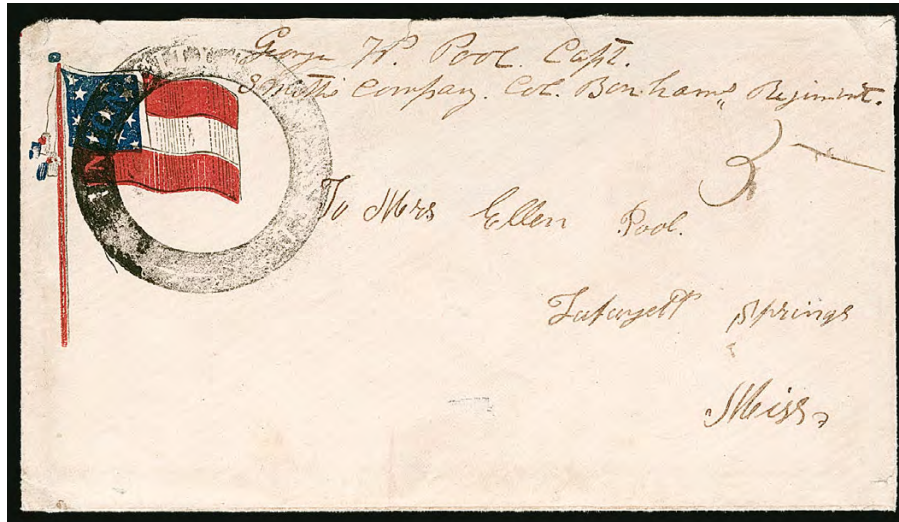 George W. Pool. Capt.
Smotts Company. Col. Bonham" Regiment.
3
To Mrs Ellen Pool.
Lafayett Springs
Miss